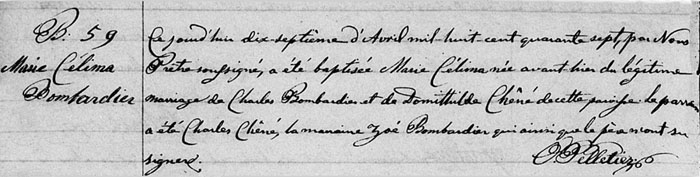 B. 59
Marie Célima
Bombardier
Ce jourd'hui dix-septième d'Avril mil-huit cent quarante sept, par Nous
Prêtre soussigné, a été baptisée Marie Célima née avant hier du légitime
mariage de Charles Bombardier et de Domithilde Chêné de cette paroisse le parrain
a été Charles Chêné, la marraine Zoé Bombardier qui ainsi que le père n'ont su
signer.
O. Pelletier